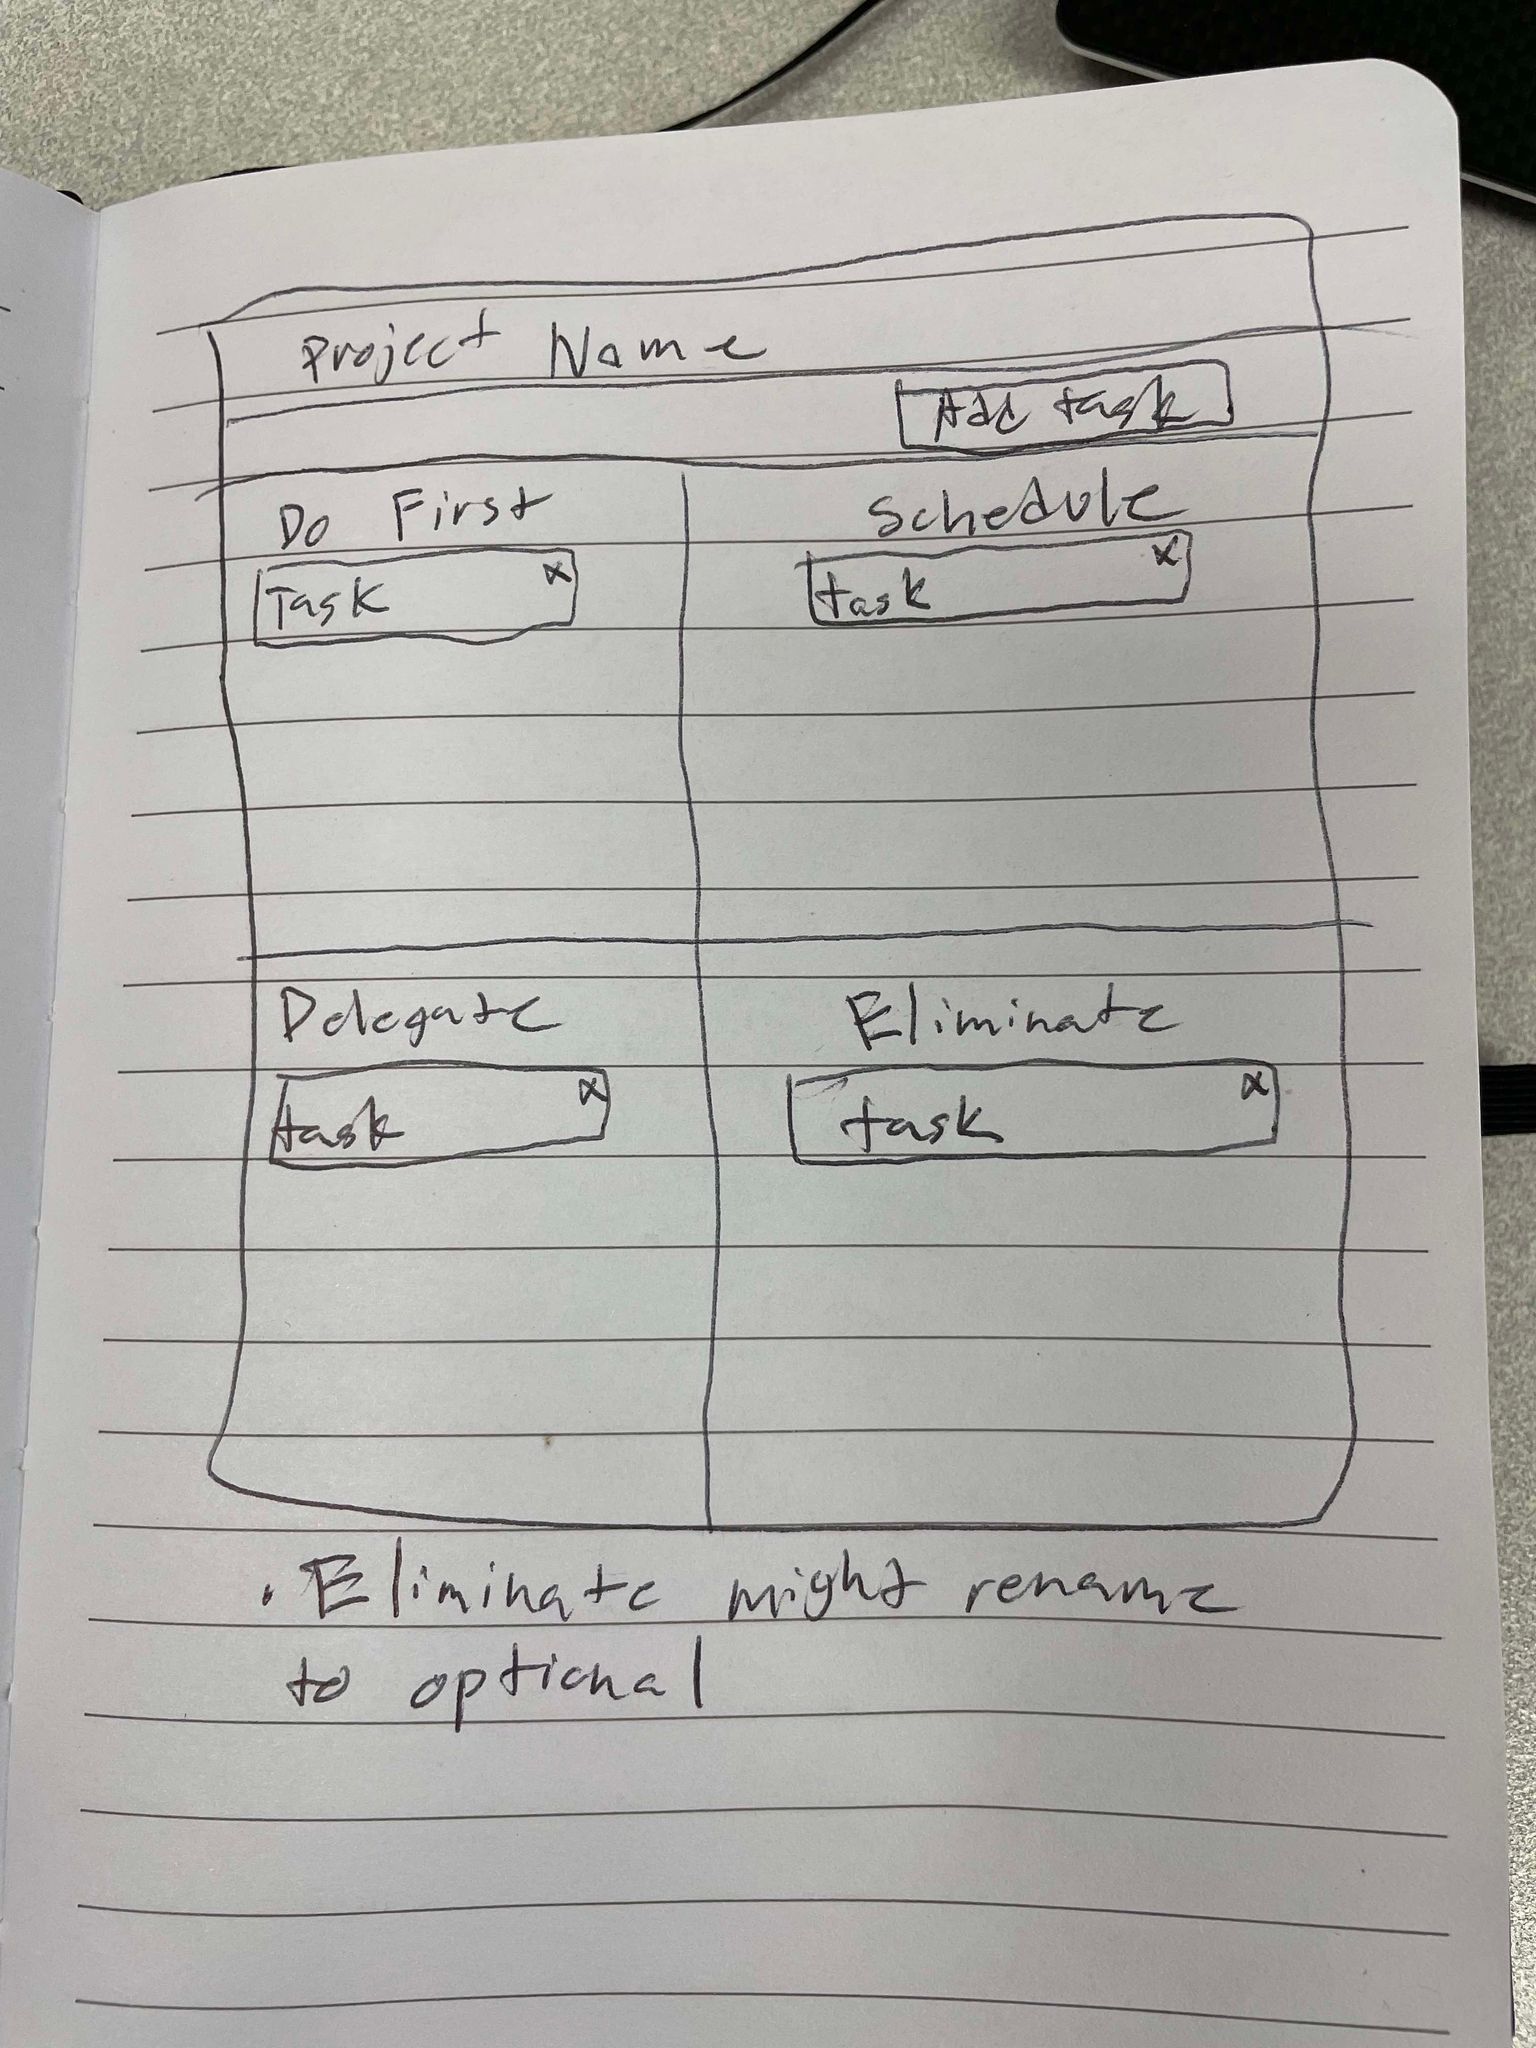 Project Name
Add task
Do First
Schedule
Task x
task x
Delegate
Eliminate
task x
task x
. Eliminate might rename
to optional